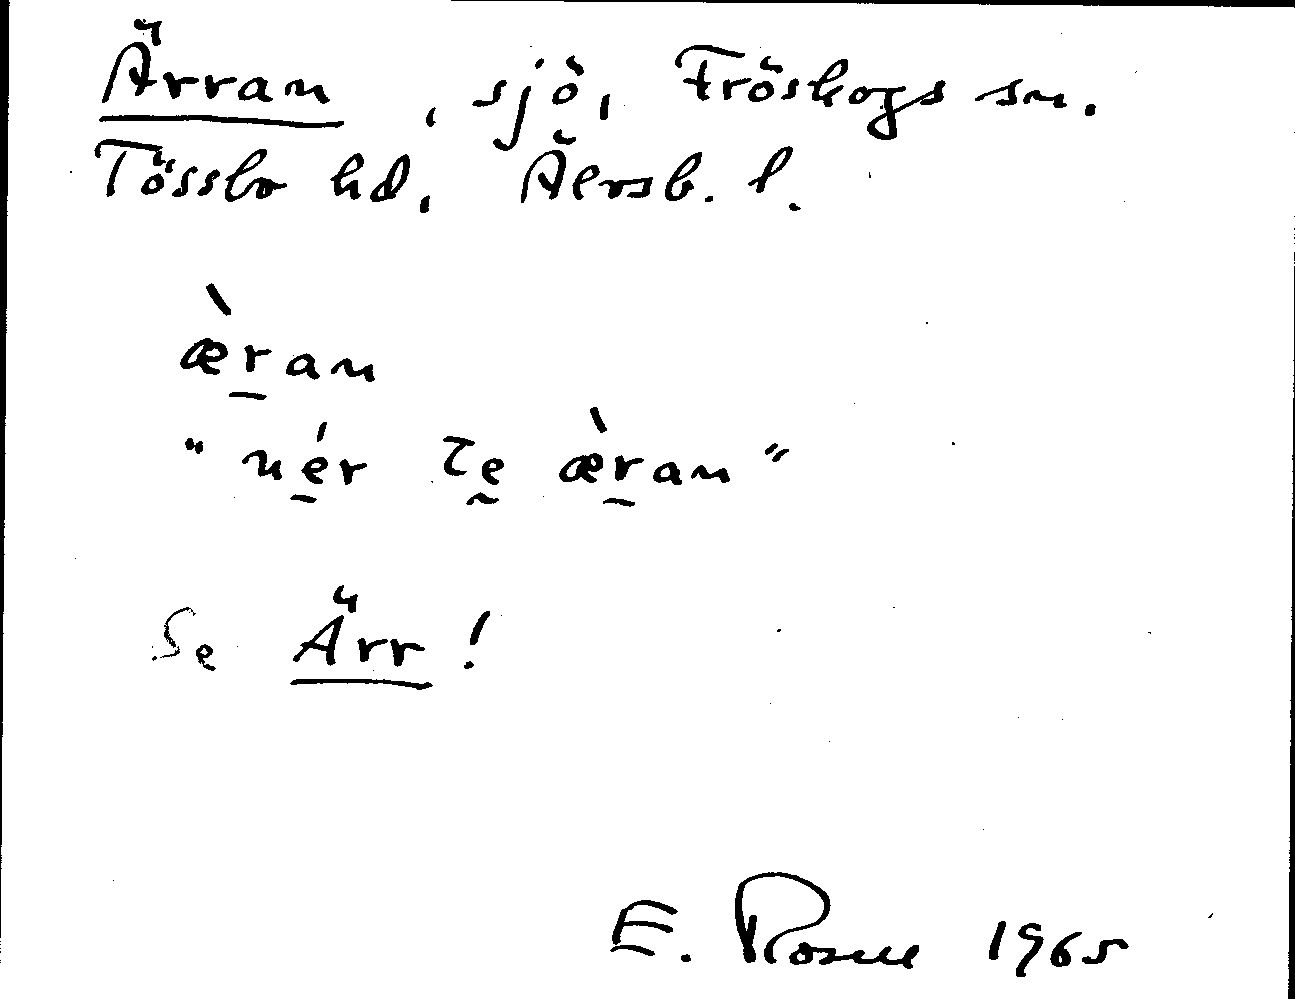 Ärran, sjö, Fröskogs sn.
Tössbo hd, Älvsb. l.
æ̀r̲an
"né̲r tḛ æ̀r̲an"
Se Ärr!
E. Rosell 1965